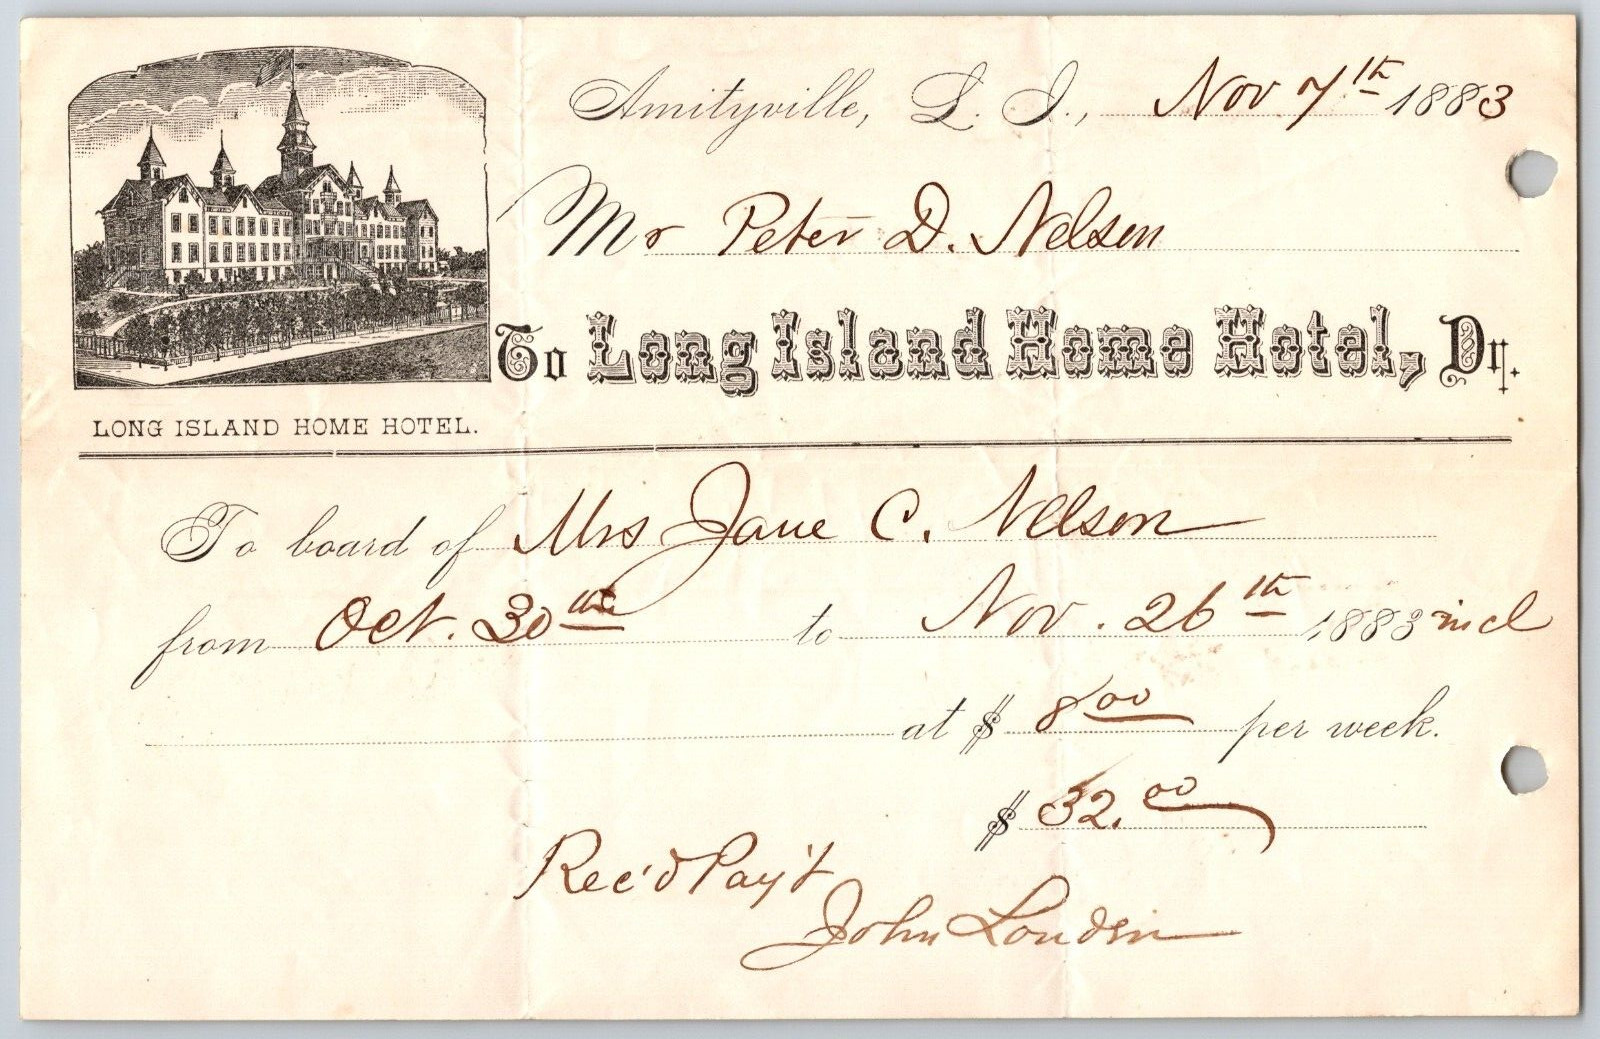 Amityville, L. I., Nov 7th 1883
Mr Peter D. Nelson
To Long Island Home Hotel, Dr.
LONG ISLAND HOME HOTEL.
To board of Mrs Jane C. Nelson
from Oct. 30th to Nov. 26th 1883 incl
at $ 8.00 per week.
$ 32.00
Rec'd Pay't
John Louden